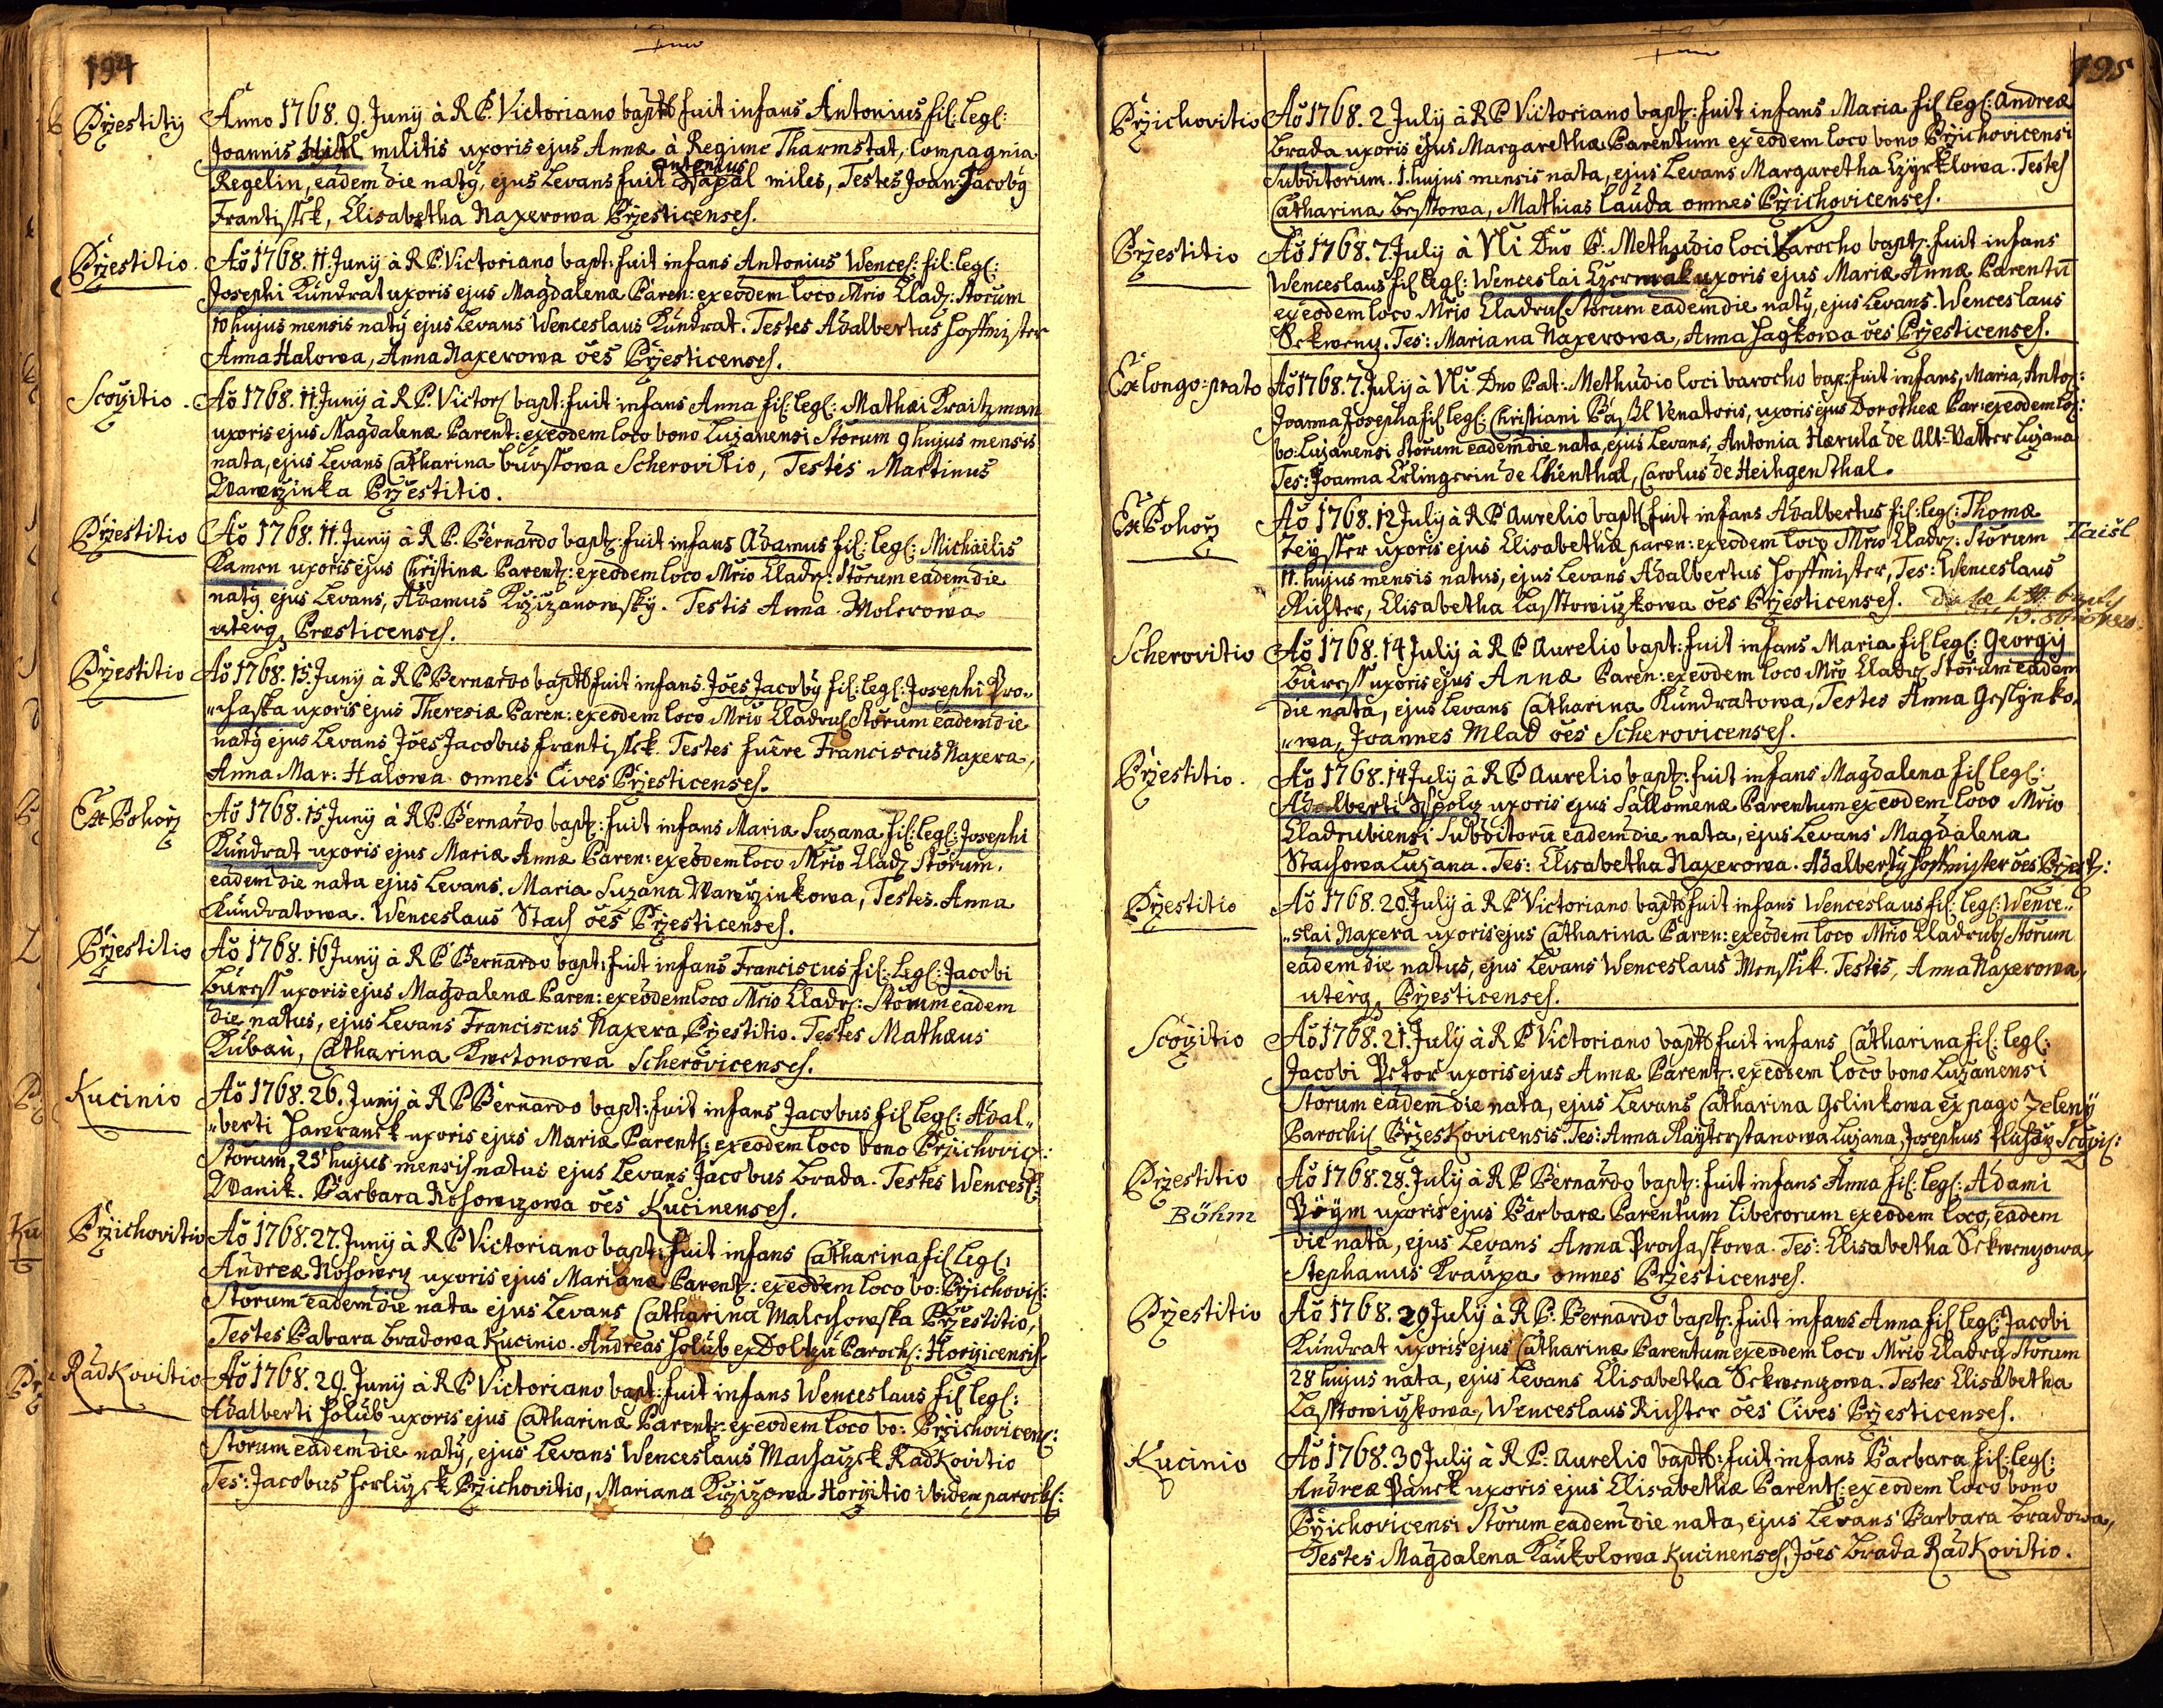 194
Przestitÿ
Anno 1768. 9. Junÿ à R.P. Victoriano baptus fuit infans Antonius fil: legl:
Joannis Hitl militis uxoris ejus Annæ à Regime Tharmstat, Compagnia
antonius
Regelin, eadem die natÿ, ejus Levans fuit miles, Testes Joan: Jacobÿ
Frantissek, Elisabetha Naxerowa Przesticenses.
Przestitio.
Ao 1768. 11. Junÿ à R.P. Victoriano bapt: fuit infans Antonius Wences: fil: legl:
Josephi Kundrat uxoris ejus Magdalenæ Paren: ex eodem loco Mrio Cladz: Storum
10 hujus mensis natÿ ejus Levans Wenceslaus Kundrat. Testes Adalbertus Hoffmister
Anna Halowa, Anna Naxerowa öes Przesticenses.
Scozitio.
Ao 1768. 11. Junÿ à R.P. Victor: bapt: fuit infans Anna fil: legl: Mathæi Kraitzman
uxoris ejus Magdalenæ Parent: ex eodem loco bono Luzanensi Storum 9 hujus mensis
nata, ejus Levans Catharina Burssowa Scherovitio, Testes Martinus
Wawrzinka Przestitio.
Przestitio
Ao 1768. 11. Junÿ à R.P. Bernardo bapt: fuit infans Adamus fil: legl: Michaelis
Kamen uxoris ejus Christinæ Parent: ex eodem loco Mrio Cladr: Storum eadem die
natÿ ejus Levans, Adamus Krzizanowskÿ. Testis Anna Molerowa
uterq Præsticenses.
Przestitio
Ao 1768. 15. Junÿ à R.P. Bernardo baptus fuit infans Jöes Jacobÿ fil: legl: Josephi Pro„
„chaska uxoris ejus Theresiæ Paren: ex eodem loco Mrio Cladru Storum eadem die
natÿ ejus Levans Jöes Jacobus Frantissek. Testes fuêre Franciscus Naxera,
Anna Mar: Halowa omnes Cives Przesticenses.
Ex Pohorz
Ao 1768. 15 Junÿ à R.P. Bernardo bapt: fuit infans Maria Suzana fil: legl: Josephi
Kundrat uxoris ejus Mariæ Annæ Paren: ex eodem loco Mrio Cladz Storum.
eadem die nata ejus Levans. Maria Suzana Wawrzinkowa, Testes. Anna
Kundratowa. Wenceslaus Stach öes Przesticenses.
Przestitio
Ao 1768. 16 Junÿ à R.P. Bernardo bapt: fuit infans Franciscus fil: legl: Jacobi
Buress uxoris ejus Magdalenæ Paren: ex eodem loco Mrio Cladr: Storum eadem
die natus, ejus Levans Franciscus Naxera, Przestitio. Testes Mathæus
Kubau, Catharina Kwetonowa Scherovicenses.
Kucinio
Ao 1768. 26. Junÿ à R P Bernardo bapt: fuit infans Jacobus fil legl: Adal„
„berti Hawranek uxoris ejus Mariæ Parent: ex eodem loco bono Przichovic:
Storum, 25 hujus mensis natus ejus Levans Jacobus Brada. Testes Wencesl:
Wanik. Barbara Nosowczowa öes Kucinenses.
Przichovitio
Ao 1768. 27. Junÿ à R P Victoriano bapt: fuit infans Catharina fil legl:
Andreæ Nosowcz uxoris ejus Marianæ Parent: ex eodem loco bo: Przichovis:
Storum eadem die nata ejus Levans Catharina Malechowska Przestitio,
Testes Babara Bradowa Kucinio. Andreas Holub ex Doltzu Paroch: Horzicensis.
RadKovitio
Ao 1768. 29. Junÿ à R P Victoriano bapt: fuit infans Wenceslaus fil legl:
Adalberti Holub uxoris ejus Catharinæ Parent: ex eodem loco bo: Przichovicen:
Storum eadem die natÿ, ejus Levans Wenceslaus Machaczek RadKovitio
Tes: Jacobus Herliczek Przichovitio, Mariana Krzizowa Horzitio ibidem paroch:
195
Przichovitio
Ao 1768. 2 Julÿ à R P Victoriano bapt: fuit infans Maria fil legl: Andreæ
Brada uxoris ejus Margarethæ Parentum ex eodem loco bono Przichovicensi
Subditorum. 1. hujus mensis nata, ejus Levans Margaretha Czyrklowa. Testes
Catharina Bessowa, Mathias Lauda omnes Przichovicenses.
Przestitio
Ao 1768. 7. Julÿ à Vli Dno P: Methudio loci Parocho bapt: fuit infans
Wenceslaus fil legl: Wenceslai Czerwak uxoris ejus Mariæ Annæ Parentu
ex eodem loco Mrio Cladrus Storum eadem die natÿ, ejus Levans. Wenceslaus
Sekwenz. Tes: Mariana Naxerowa, Anna Hagkowa öes Przesticenses.
Ex longo=prato
Ao 1768. 7. Julÿ à Vli Dno Pat: Methudio loci Parocho bap: fuit infans, Maria, Anto:
Joanna Josepha fil legl: Christiani venatoris, uxoris ejus Dorotheæ Par: ex eodem loc:
bo: Luzanensi Storum eadem die nata, ejus Levans, Antonia Hærula de Alt=Vatter Luzana
Tes: Joanna Erlingerin de Lhienthal, Carolus de Heihgenthal.
Ex Pohorz
Ao 1768. 12 Julÿ à R P Aurelio bapt fuit infans Adalbertus fil: legl: Thomæ
Zeyster uxoris ejus Elisabethæ paren: ex eodem loco Mrio Cladr: Storum Taisl
11. hujus mensis natus, ejus Levans Adalbertus Hoffmister, Tes: Wenceslaus
Richter, Elisabetha Lasstowiczkowa öes Przesticenses.
Scherovitio
Ao 1768. 14 Julÿ à R P Aurelio bapt: fuit infans Maria fil legl: Georgÿ
Buress uxoris ejus Annæ Paren: ex eodem loco Mrio Cladz Storum eadem
die nata, ejus Levans Catharina Kundratowa, Testes Anna Geslynko„
„wa, Joannes Mlad öes Scherovicenses.
Przestitio.
Ao 1768. 14 Julÿ à R P Aurelio bapt: fuit infans Magdalena fil legl:
Adalberti uxoris ejus Sallomenæ Parentum ex eodem loco Mrio
Cladrubiensi Subditoru eadem die nata, ejus Levans Magdalena
Stachowa Luzana. Tes: Elisabetha Naxerowa. Adalbertÿ Hoffmister öes Przest:
Przestitio
Ao 1768. 20 Julÿ à R P Victoriano baptus fuit infans Wenceslaus fil: legl: Wence„
„slai Naxera uxoris ejus Catharina Paren: ex eodem loco Mrio Cladrub Storum
eadem die natus, ejus Levans Wenceslaus Menssik. Testis, Anna Naxerowa,
uterq Przesticenses.
Scozitio
Ao 1768. 21. Julÿ à R P Victoriano baptus fuit infans Catharina fil: legl:
Jacobi Petor uxoris ejus Annæ Parent: ex eodem loco bono Luzanensi
Storum eadem die nata, ejus Levans Catharina Gslinkowa ex pago Zelenÿ
Parochi Przeskovicensis. Tes: Anna Rayterstanowa Luzana, Josephus
Przestitio
Böhm
Ao 1768. 28. Julÿ à R P Bernardo bapt: fuit infans Anna fil: legl: Adami
Pöym uxoris ejus Barbaræ Parentum liberorum ex eodem loco, eadem
die nata, ejus Levans Anna Prochaskowa. Tes: Elisabetha Sekwenzowa,
Stephanus Kraupa omnes Przesticenses.
Przestitio
Ao 1768. 29 Julÿ à R P. Bernardo bapt: fuit infans Anna fil legl: Jacobi
Kundrat uxoris ejus Catharinæ Parentum ex eodem loco Mrio Cladru Storum
28 hujus nata, ejus Levans Elisabetha Sekwenzowa. Testes Elisabetha
Lasstowiczkowa, Wenceslaus Richter öes Cives Przesticenses.
Kucinio
Ao 1768. 30 Julÿ à R P: Aurelio baptus: fuit infans Barbara fil: legl:
Andreæ Panek uxoris ejus Elisabethæ Parent: ex eodem loco bono
Przichovicensi Storum eadem die nata, ejus Levans Barbara Bradowa,
Testes Magdalena Kaukolowa Kucinenses, Jöes Brada RadKovitio.